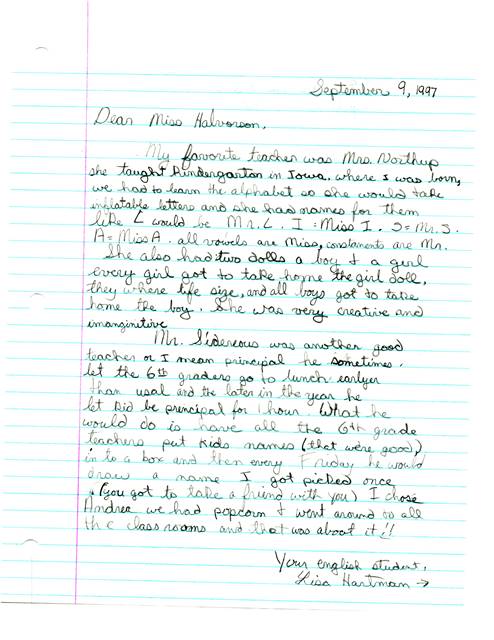 September 9, 1997
Dear Miss Halvorson,
My favorite teacher was Mrs. Northup
she taught Kindergarton in Iowa. where I was born,
we had to learn the alphabet so she would take
inflatable letters and she had names for them
like L would be Mr. L. I = Miss I. S = Mr. S.
A = Miss A. all vowels are Miss, constanents are Mr.
She also had two dolls a boy & a girl
every girl got to take home the girl doll,
they where life size, and all boys got to take
home the boy. She was very creative and
imanginitive
Mr. Sidereous was another good
teacher or I mean principal he sometimes.
let the 6th graders go to lunch earlyer
than usal and the later in the year he
let kid be principal for 1 hour. What he
would do is have all the 6th grade
teachers put kids names (that were good,)
in to a box and then every Friday he would
draw a name I got picked once
(you got to take a friend with you) I chose
Andrea we had popcorn & went around to all
the class rooms and that was about it!!
Your english student,
Lisa Hartman →